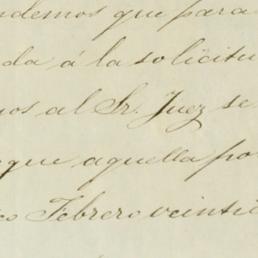 ndemos que para
da á la solicitu
nos al Sr. Juez se
que aquella po
Febrero veintic